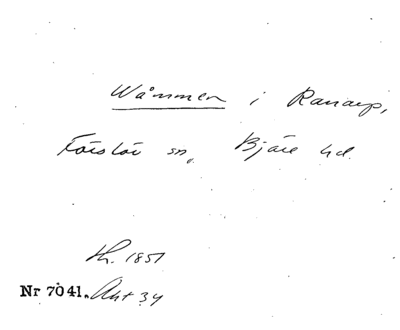 Wåmmen i Ranarp,
Förslöv sn, Bjäre hd.
Th. 1851
Nr 7041. Akt 34